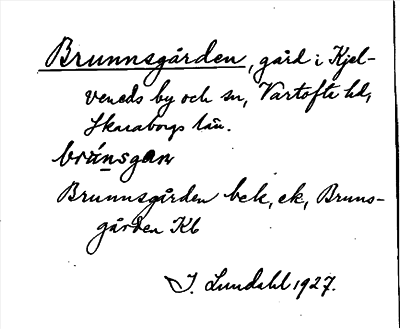 Brunnsgården, gård i Kjel-
veneds by och sn, Vartofta hd,
Skaraborgs län.
brúnsgan
Brunnsgården bek, ek, Bruns-
gården Kb
I. Lundahl 1927.